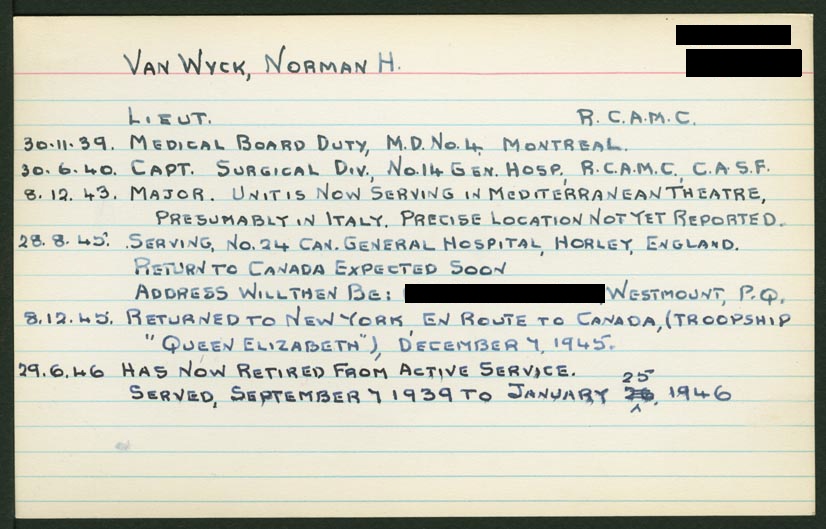 VAN WYCK, NORMAN H.
LIEUT. R.C.A.M.C.
30.11.39. MEDICAL BOARD DUTY, M.D. NO.4, MONTREAL.
30.6.40. CAPT. SURGICAL DIV., NO.14 GEN. HOSP., R.C.A.M.C., C.A.S.F.
8.12.43. MAJOR. UNIT IS NOW SERVING IN MEDITERRANEAN THEATRE,
PRESUMABLY IN ITALY. PRECISE LOCATION NOT YET REPORTED.
28.8.45. SERVING, NO.24 CAN. GENERAL HOSPITAL, HORLEY, ENGLAND.
RETURN TO CANADA EXPECTED SOON
ADDRESS WILL THEN BE: WESTMOUNT, P.Q.
8.12.45. RETURNED TO NEW YORK, EN ROUTE TO CANADA, (TROOPSHIP
"QUEEN ELIZABETH"), DECEMBER 7, 1945.
29.6.46 HAS NOW RETIRED FROM ACTIVE SERVICE.
25
SERVED, SEPTEMBER 7 1939 TO JANUARY 26, 1946